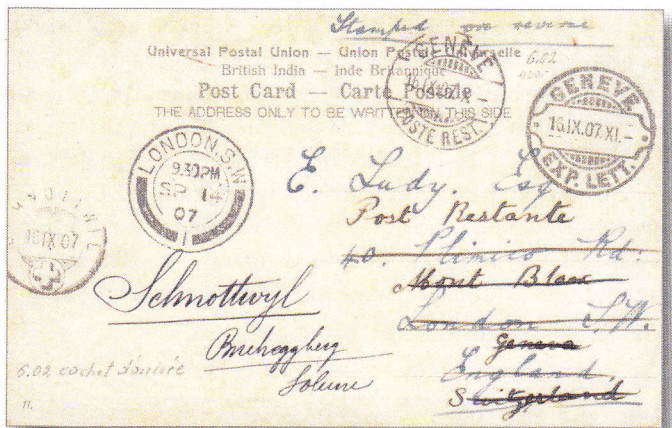 Stamped on reverse
Universal Postal Union — Union Postale Universelle
British India — Inde Britannique
Post Card — Carte Postale
THE ADDRESS ONLY TO BE WRITTEN ON THIS SIDE
6.02
GENÈVE
16.IX.07.IX
POSTE REST.
GENÈVE
16.IX.07.XI.–
EXP. LETT.
LONDON. S.W
9.30PM
SP 14
07
1
SCHNOTTWIL
16 IX 07
E. Ludy. Esq
Post Restante
40. Plimico Rd.
Mont Blanc
London S.W.
Geneva
England,
Switzerland
Schnottwyl
Bucheggberg
Soleure
6.02 cachet d'arrivée
11.